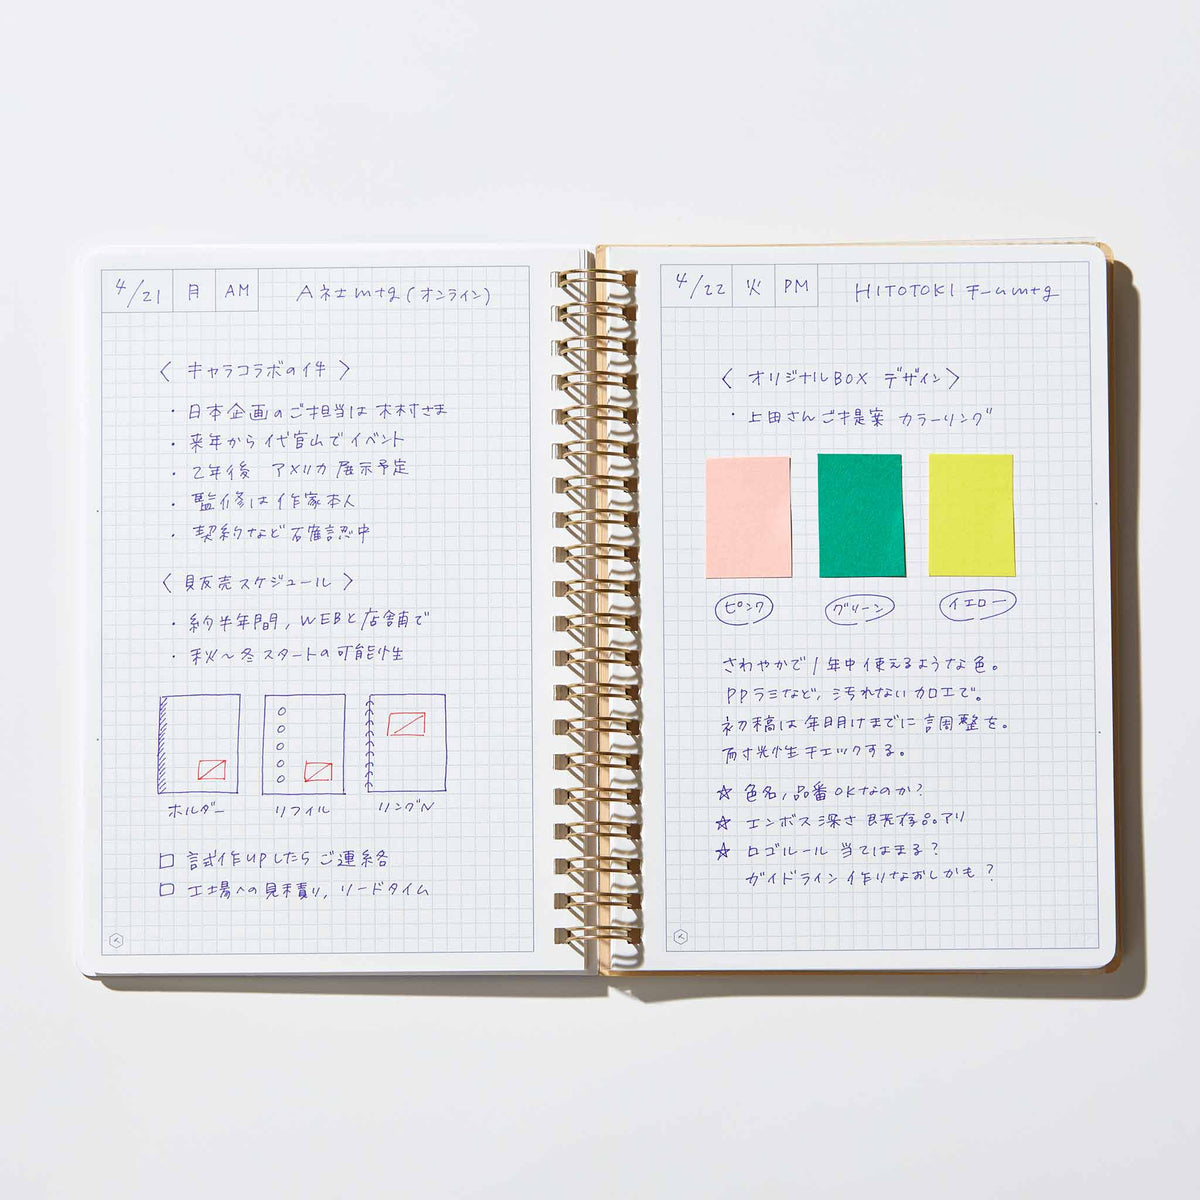 4/21 月 AM A社mtg(オンライン)
〈 キャラコラボの件 〉
・日本企画のご担当は 木村さま
・来年から代官山でイベント
・2年後 アメリカ展示予定
・監修は作家本人
・契約など確認中
〈 販売スケジュール 〉
・約半年間, WEBと店舗で
・秋〜冬スタートの可能性
ホルダー リフィル リングN
□ 試作upしたらご連絡
□ 工場への見積り, リードタイム
4/22 火 PM HITOTOKI チームmtg
〈 オリジナルBOX デザイン 〉
・上田さんご提案 カラーリング
ピンク グリーン イエロー
さわやかで1年中使えるような色。
PPラミなど, 汚れない加工で。
初稿は年明けまでに調整を。
耐光性チェックする。
☆ 色名, 品番OKなのか?
☆ エンボス深さ 既存品アリ
☆ ロゴルール 当てはまる?
ガイドライン作りなおしかも?